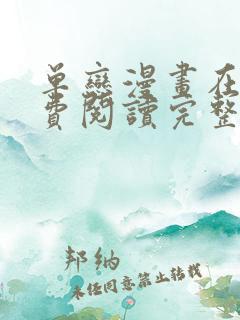 单恋漫畫在
費閱讀完整
邦纳
未经同意禁止转载